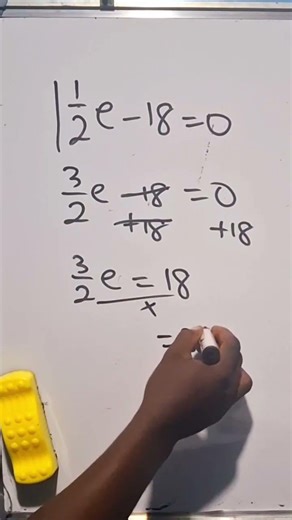 1 1/2 e - 18 = 0
3/2 e - 18 = 0
+18 +18
3/2 e = 18
x
=